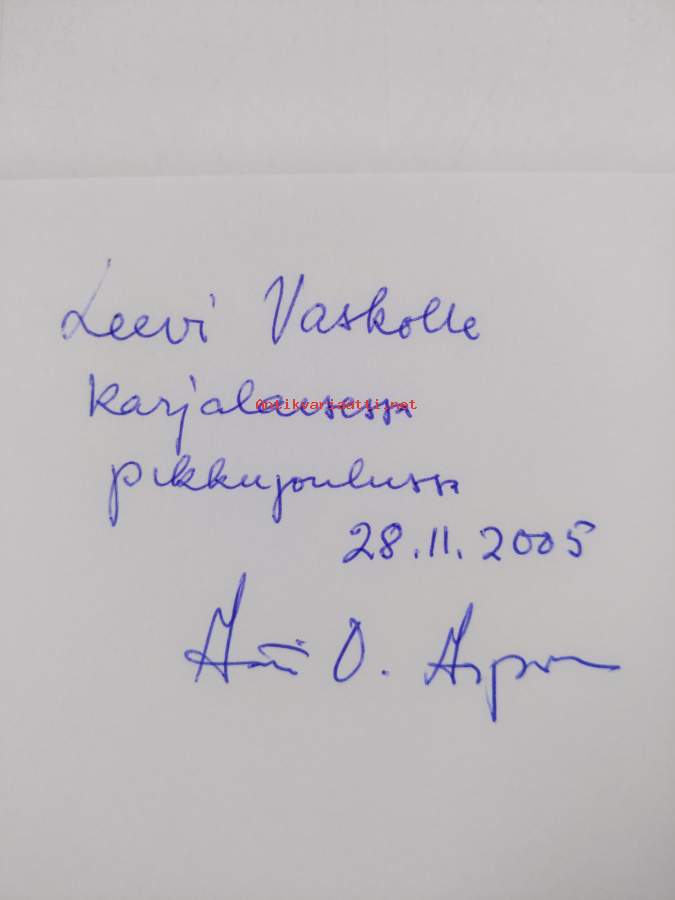 Leevi Vaskolle
karjalaisessa
antikvariaatti.net
pikkujoulussa
28.11.2005
O.